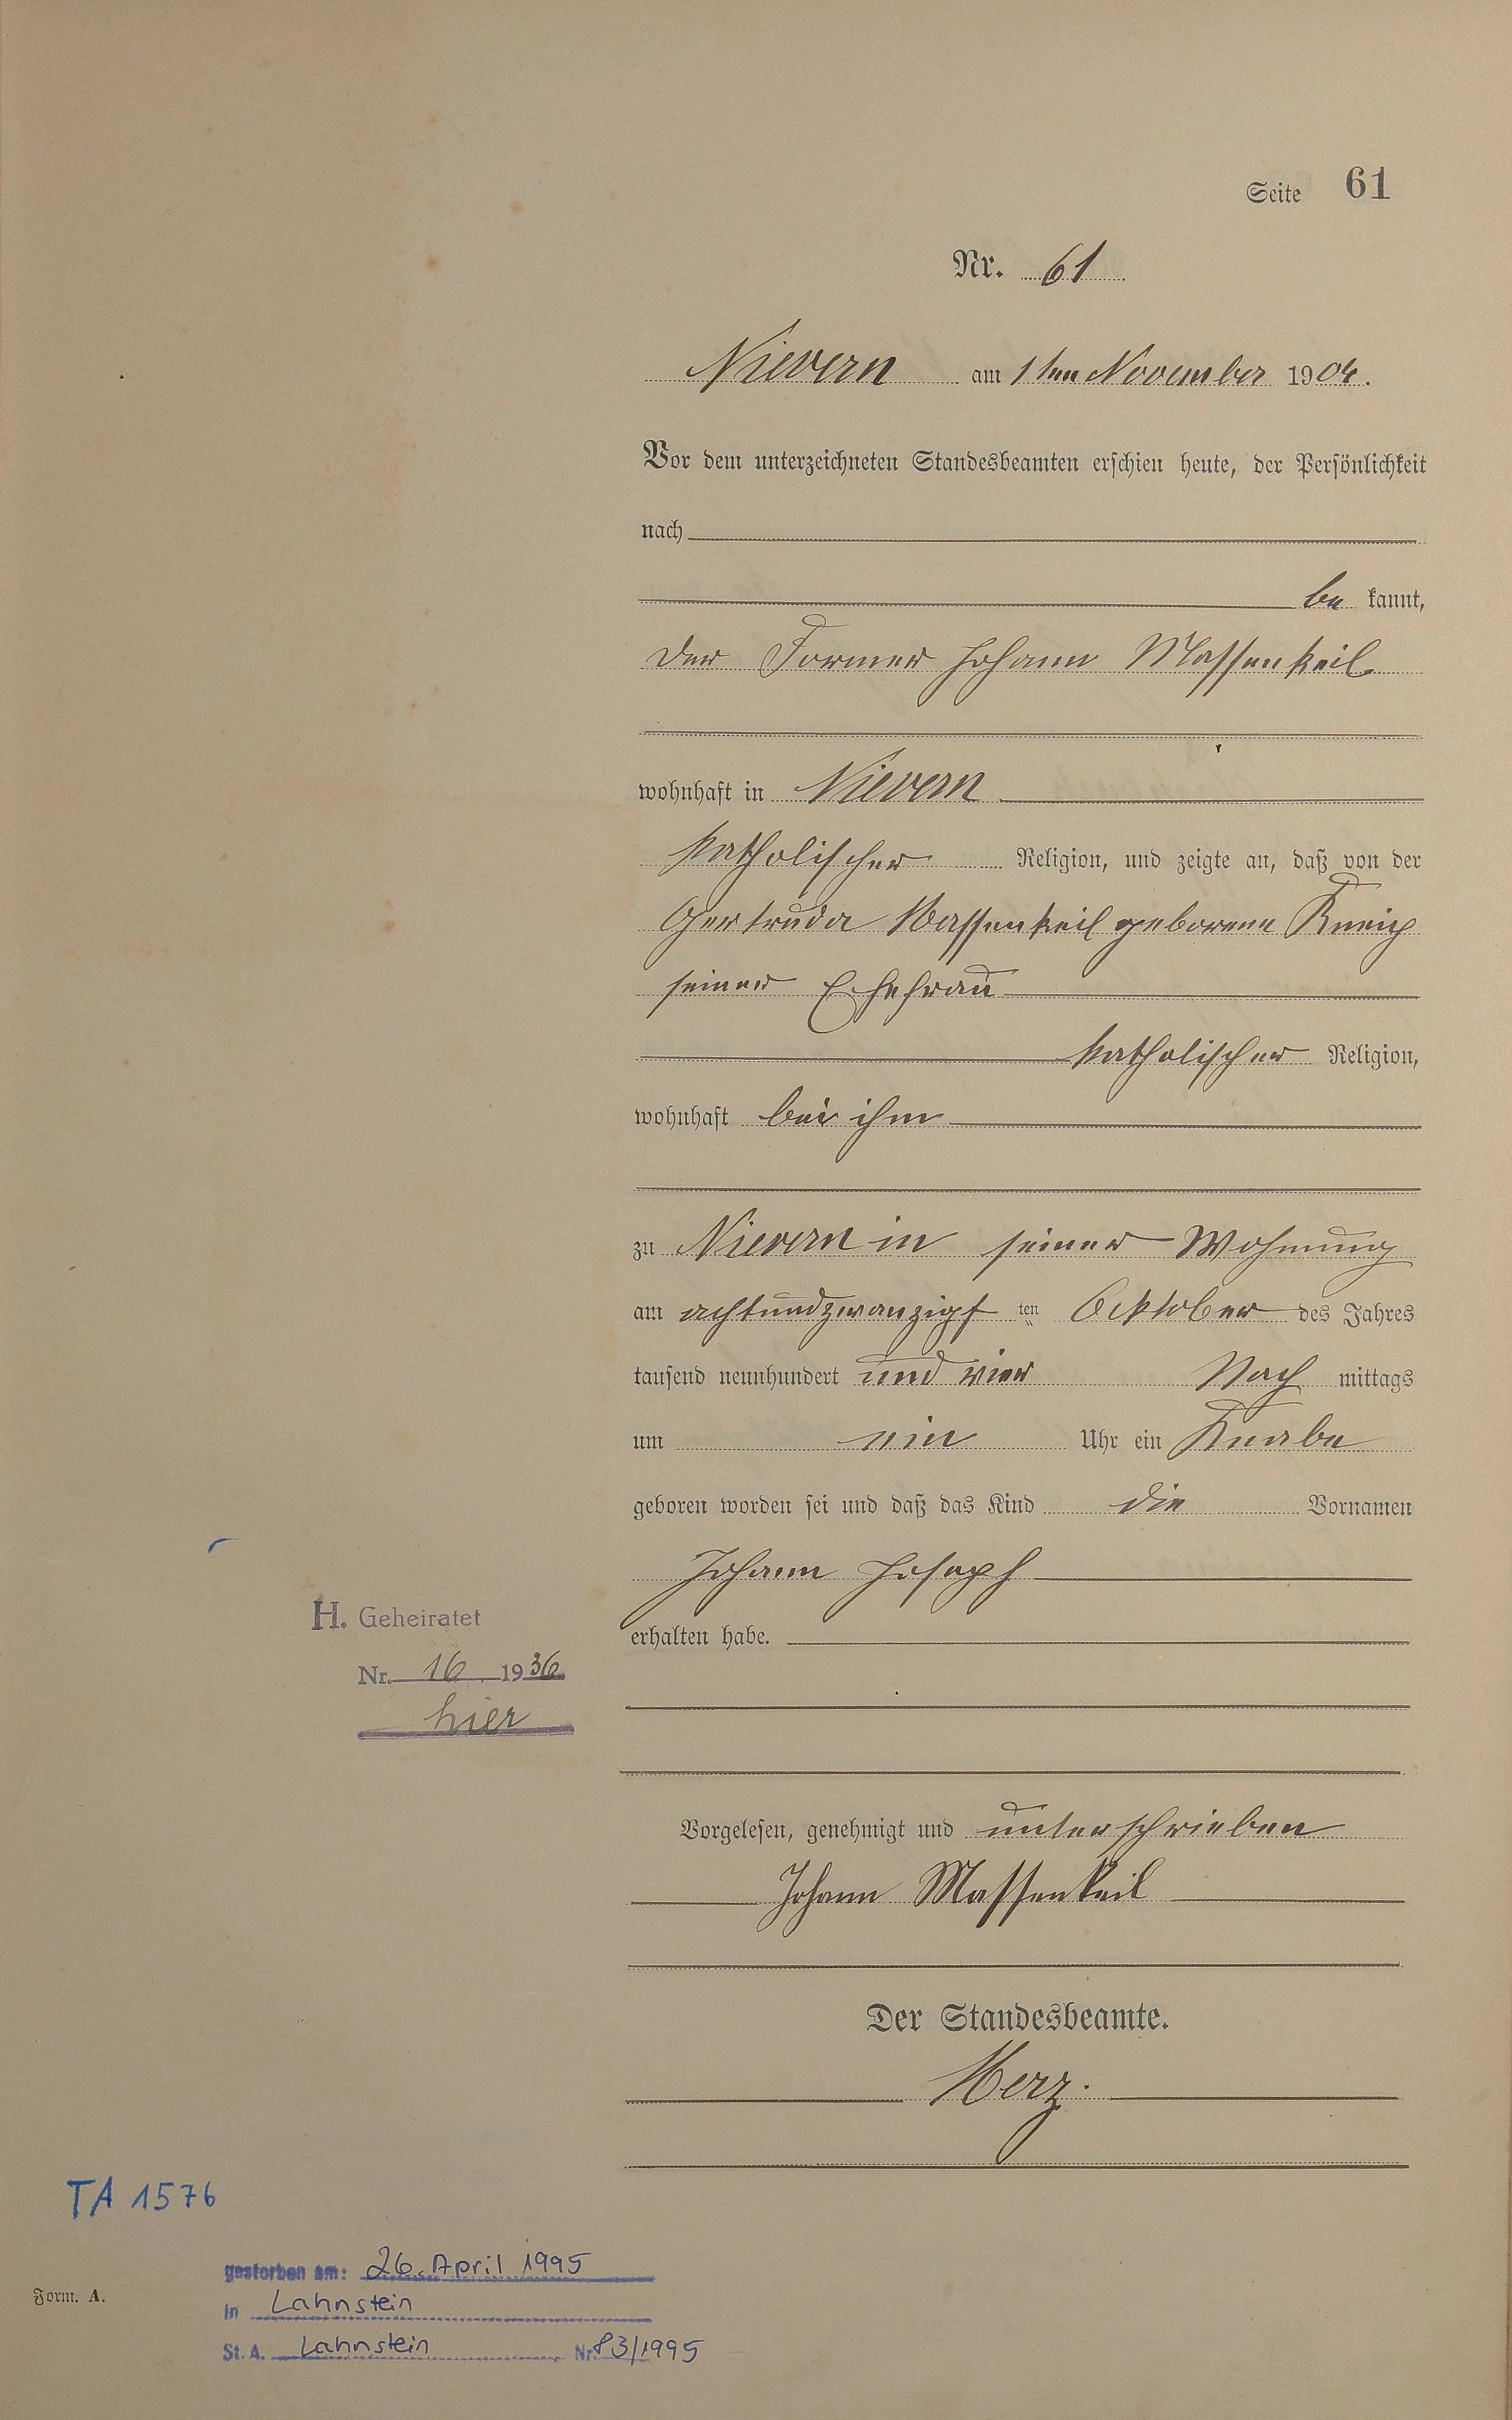 Seite 61
Nr. 61
Nievern am 1ten November 1904.
Vor dem unterzeichneten Standesbeamten erschien heute, der Persönlichkeit
nach
be kannt,
der Former Johann Massenkeil
wohnhaft in Nievern
katholischer Religion, und zeigte an, daß von der
Gertruda Massenkeil geborene
seiner Ehefrau
katholischer Religion,
wohnhaft bei ihm
zu Nievern in seiner Wohnung
am achtundzwanzigst ten Ocktober des Jahres
tausend neunhundert und vier Nach mittags
um ein Uhr ein Knabe
geboren worden sei und daß das Kind die Vornamen
Johann Joseph
erhalten habe.
H. Geheiratet
Nr. 16 1936
hier
Vorgelesen, genehmigt und unterschrieben
Johann Massenkeil
Der Standesbeamte.
Merz.
TA 1576
gestorben am: 26. April 1995
in Lahnstein
St. A. Lahnstein Nr. 83/1995
Form. A.